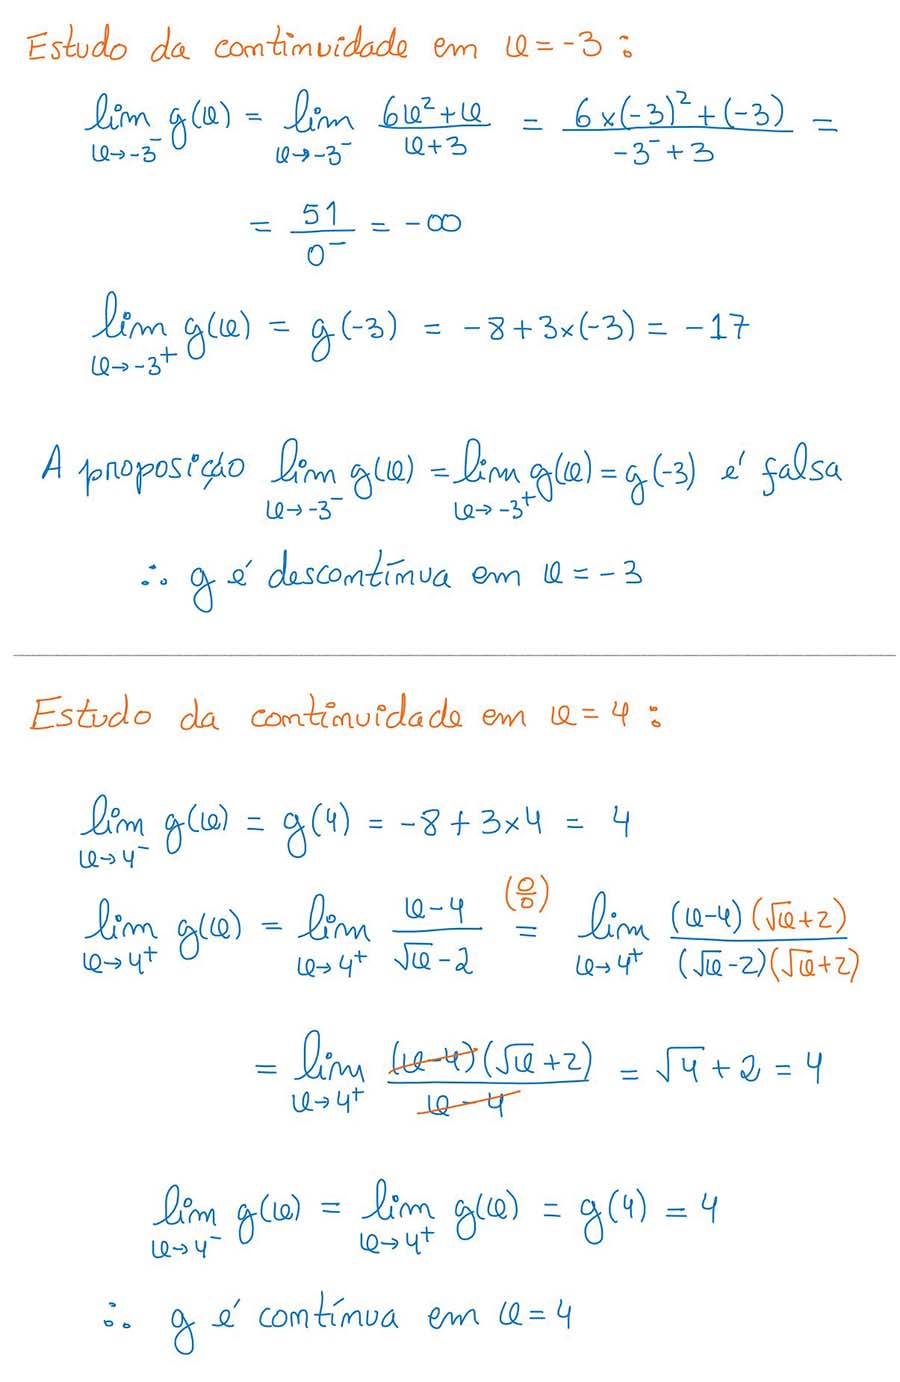 Estudo da continuidade em x = -3 :
lim x→-3⁻ g(x) = lim x→-3⁻ (6x²+x)/(x+3) = (6×(-3)²+(-3))/(-3⁻+3) =
= 51/0⁻ = -∞
lim x→-3⁺ g(x) = g(-3) = -8+3×(-3) = -17
A proposição lim x→-3⁻ g(x) = lim x→-3⁺ g(x) = g(-3) é falsa
∴ g é descontínua em x = -3
Estudo da continuidade em x = 4 :
lim x→4⁻ g(x) = g(4) = -8+3×4 = 4
lim x→4⁺ g(x) = lim x→4⁺ (x-4)/(√x-2) =(0/0) lim x→4⁺ ((x-4)(√x+2))/((√x-2)(√x+2))
= lim x→4⁺ ((x-4)(√x+2))/(x-4) = √4+2 = 4
lim x→4⁻ g(x) = lim x→4⁺ g(x) = g(4) = 4
∴ g é contínua em x = 4